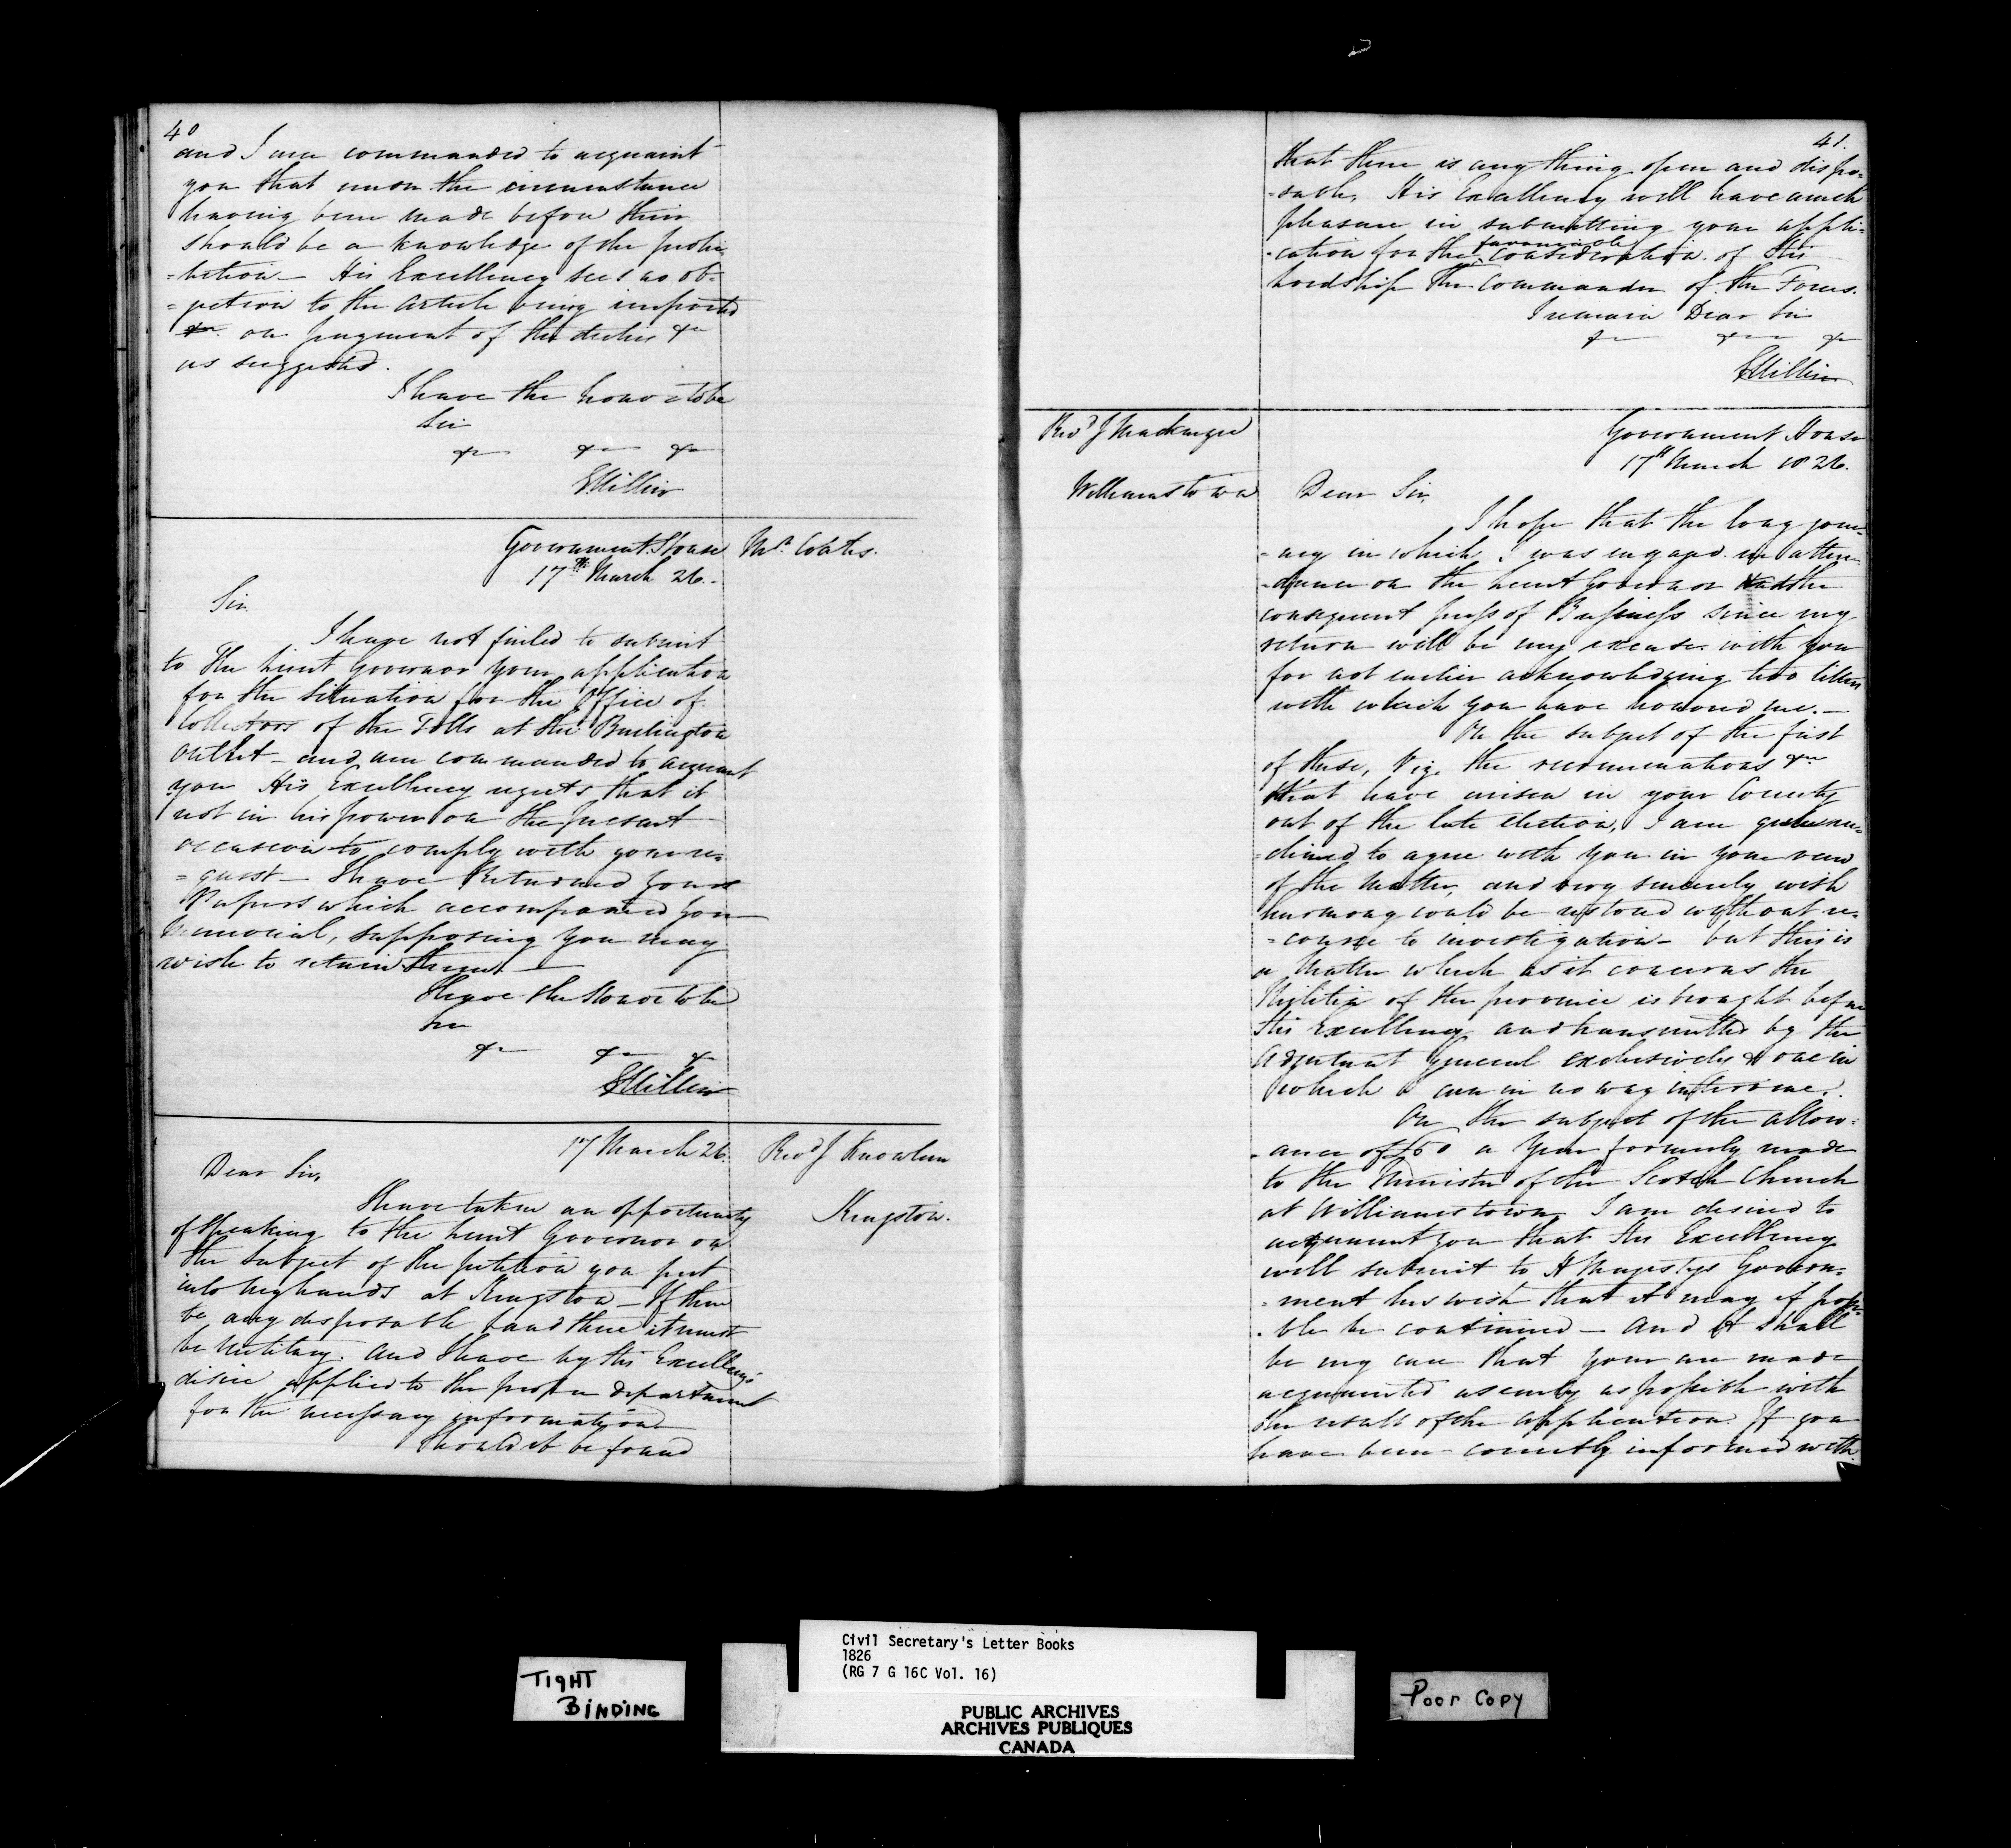 40
and I am commanded to acquaint
you that under the circumstance
having been made before their
should be a knowledge of the prohi-
=bition — His Excellency sees no ob-
=jection to the article being imported
on payment of the duties &c
as suggested.
I have the honor to be
Sir
&c &c &c
GHillier
Government House
17th March 26.-
Mr. Coates.
Sir
I have not failed to submit
to The Lieut Governor your application
for the Situation for the Office of
Collectors of the Tolls at the Burlington
Outlet - and am commanded to acquaint
you His Excellency regrets that it
not in his power on the present
occasion to comply with your re-
=quest - I have Returned your
Papers which accompanied your
Memorial, supposing you may
wish to retain them. —
I have the Honor to be
Sir
&c &c &c
GHillier
17 March 26.
Revd J Knowlan
Kingston.
Dear Sir,
I have taken an opportunity
of speaking to the Lieut Governor on
the subject of the petition you put
into my hands at Kingston - If there
be any disposable land there it must
be Military. And I have by His Excellency's
desire applied to the proper department
for the necessary information
Should it be found
41.
that there is any thing open and dispo-
-sable, His Excellency will have much
pleasure in submitting your appli-
-cation for the favourable consideration of His
Lordship The Commander of the Forces.
I remain Dear Sir
&c &c &c
GHillier
Revd J Mackenzie
Williamstown
Government House
17th March 1826.
Dear Sir,
I hope that the long jour-
-ney in which I was engaged in atten-
-dance on the Lieut Governor and the
consequent press of Business since my
return will be my excuse with you
for not earlier acknowledging two letters
with which you have honored me. —
On the subject of the first
of these, Viz. the recriminations &c
that have arisen in your County
out of the late election, I am quite in-
=clined to agree with you in your view
of the matter, and very sincerely wish
harmony could be restored without re-
=course to investigation - but this is
a matter which as it concerns the
Militia of the province is brought before
His Excellency and transmitted by the
Adjutant General exclusively & one in
which I can in no way intervene.
On the subject of the allow-
-ance of £50 a Year formerly made
to the Minister of the Scotch Church
at Williamstown I am desired to
acquaint you that His Excellency
will submit to H Majestys Govern-
=ment his wish that it may if possi-
-ble be continued — And it shall
be my care that your are made
acquainted as early as possible with
the result of the application. If you
have been correctly informed with
TIGHT
BINDING
Civil Secretary's Letter Books
1826
(RG 7 G 16C Vol. 16)
PUBLIC ARCHIVES
ARCHIVES PUBLIQUES
CANADA
Poor Copy